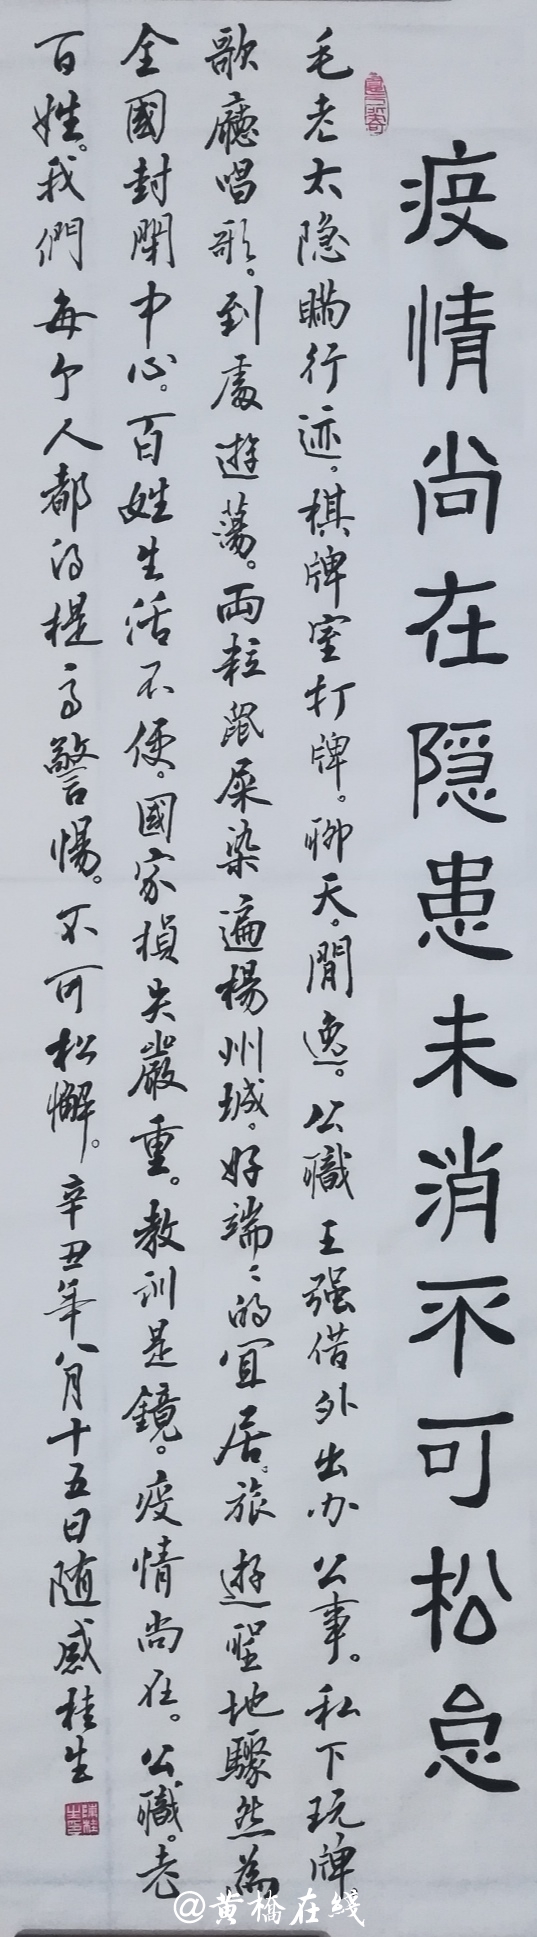 疫情尚在隐患未消不可松怠
毛老太隐瞒行迹。棋牌室打牌。聊天。閒逸。公職王强借外出办公事。私下玩牌
歌廳唱歌。到處遊蕩。両粒鼠屎染遍楊州城。好端端的宜居。旅遊聖地驟然為
全國封閉中心。百姓生活不便。國家損失嚴重。教训是鏡。疫情尚在。公職。老
百姓。我們每个人都的提高警惕。不可松懈。辛丑年八月十五日随感桂生
陳桂生印
@黄橋在线